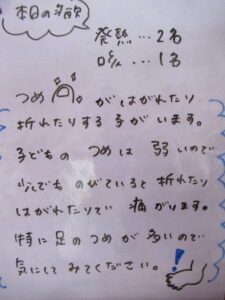 本日の多欠
発熱…2名
咳…1名
つめ が はがれたり
折れたりする子がいます。
子どもの つめは 弱いので
少しでも のびていると 折れたり
はがれたりでい 痛がります。
特に足のつめが多いので
気にしてみてください。!